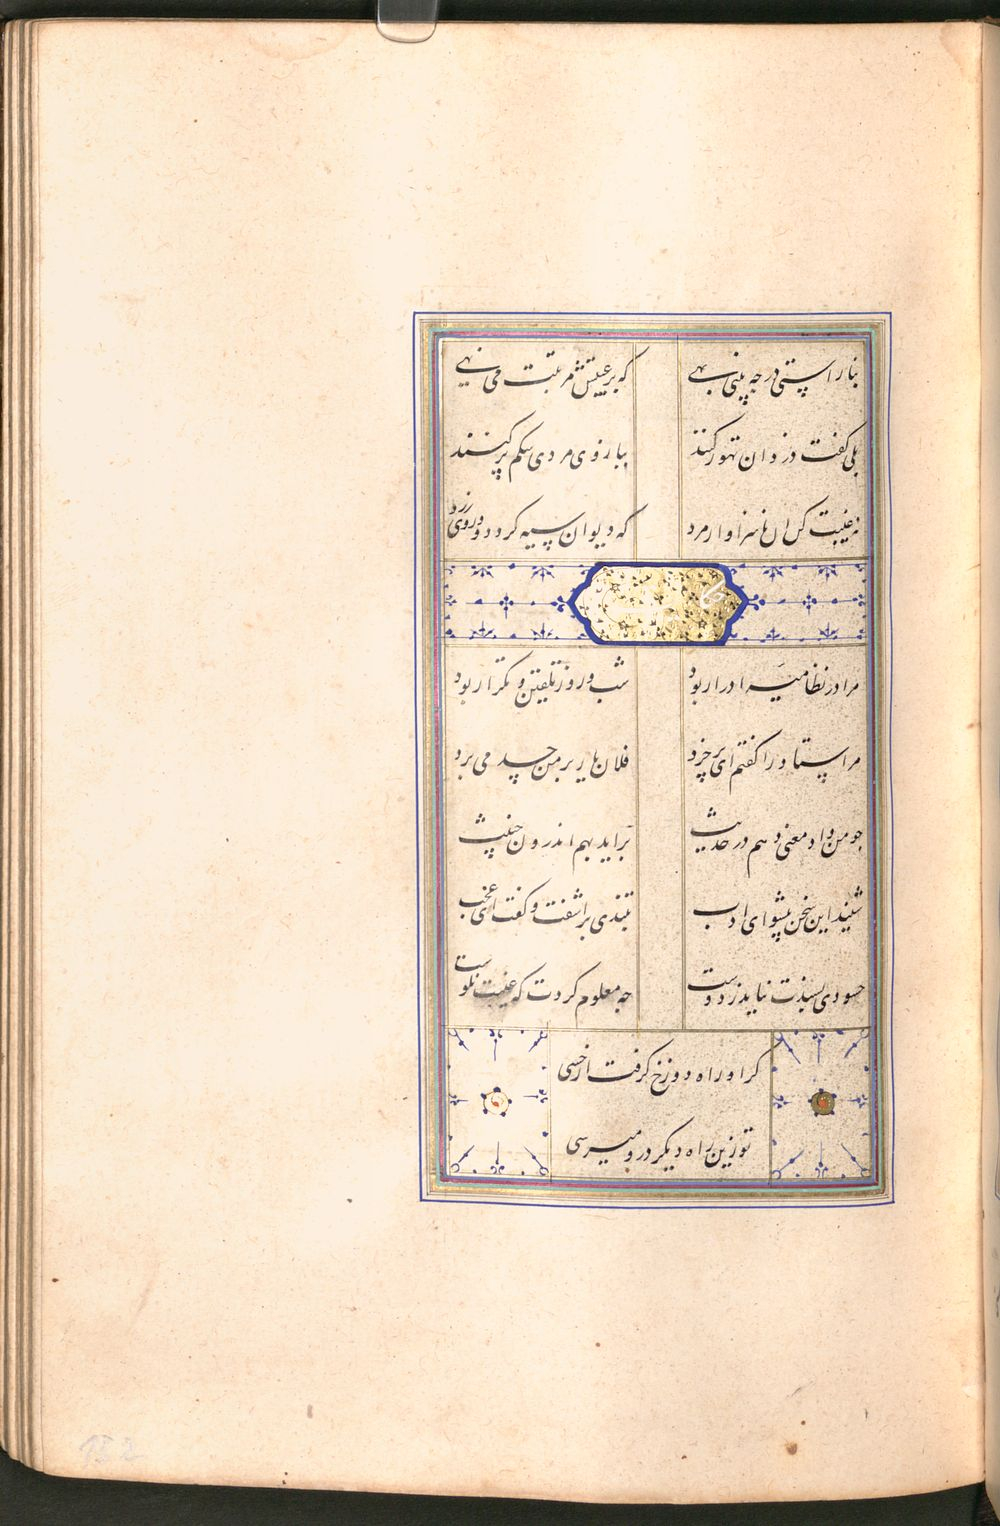 بنا راستی در چه بینی بهی که بر غیبتش مرتبت می نهی
بلی گفت دزدان تهور کنند ببازوی مردی شکم پر کنند
ز غیبت کن آن ناسزاوار مرد که دیوان سیه کرد و دروی زرد
مرا در نظامیه ادرار بود شب و روز تلقین و تکرار بود
مر استاد را گفتم ای پر خرد فلان یار بر من حسد می برد
جو من داد معنی دهم در حدیث براید بهم اندرون خبیث
شنید این سخن پیشوای ادب بتندی براشفت و گفت ای عجب
حسودی پسندت نیاید ز دوست جه معلوم کردت که غیبت نکوست
گر او راه دوزخ گرفت از خسی
تو زین راه دیگر درو میرسی
152